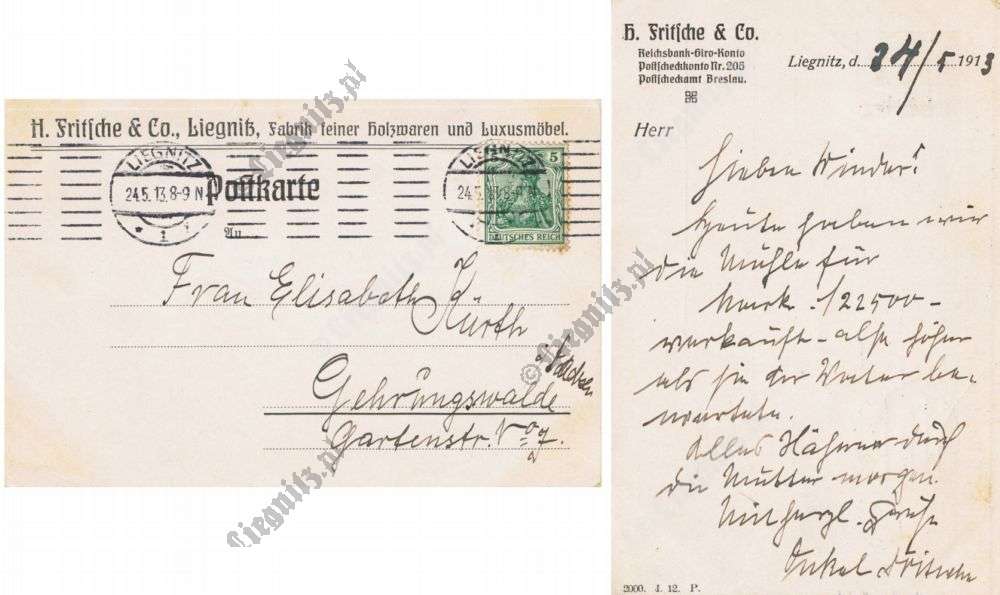 H. Fritsche & Co., Liegnitz, Fabrik feiner Holzwaren und Luxusmöbel.
LIEGNITZ
24.5.13.8-9 N
* 1
Postkarte
LIEGNITZ
24.5.13.8-9 N
5
DEUTSCHES REICH
An
Frau Elisabeth
Kürth
Gehrüngswalde
i/Sachsen
Gartenstr. No 7.
© Liegnitz.pl
H. Fritsche & Co.
Reichsbank-Giro-Konto
Postscheckkonto Nr. 205
Postscheckamt Breslau.
Liegnitz, d. 24/5 1913
Herr
Lieben Kinder!
Heute haben wir
die Mühle für
Mark 122500-
verkauft - also höher
als sie der Vater be-
wertete.
Alles Nähere durch
die Mutter morgen.
Mit herzl. Grüße
Onkel Fritsche
2000. 4. 12. P.